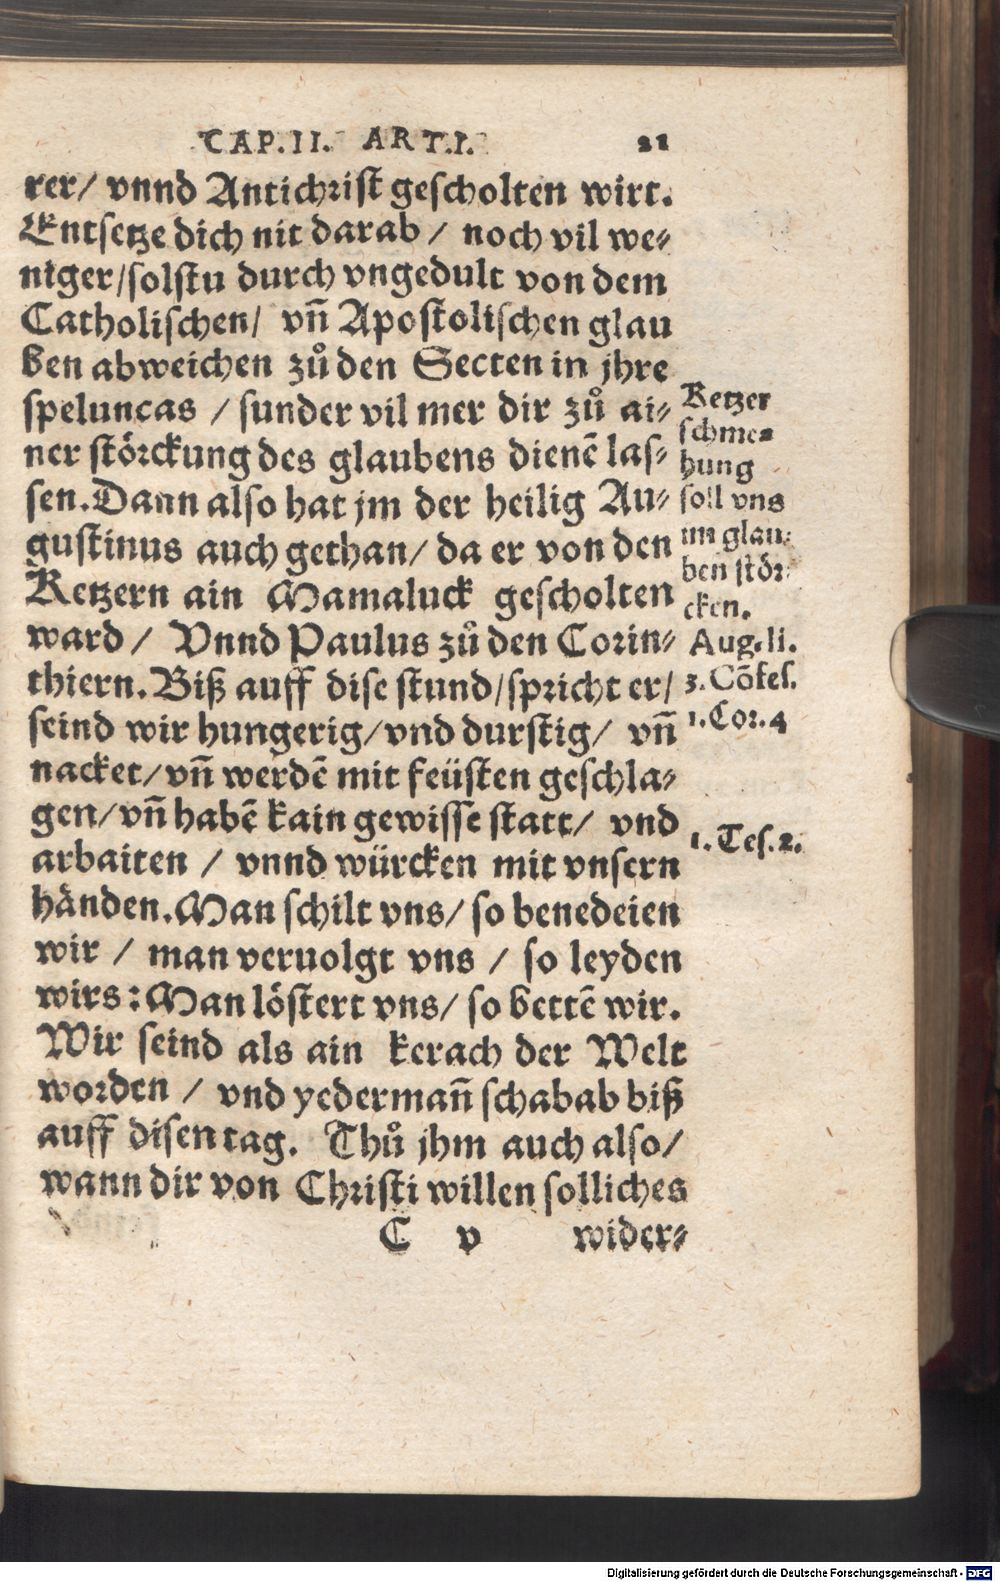 CAP. II. ART. I. 21
rer/ vnnd Antichrist gescholten wirt.
Entsetze dich nit darab/ noch vil we⸗
niger/ solstu durch vngedult von dem
Catholischen/ vñ Apostolischen glau
ben abweichen zů den Secten in jhre
speluncas / sunder vil mer dir zů ai⸗
ner störckung des glaubens dienẽ las⸗
sen. Dann also hat jm der heilig Au⸗
gustinus auch gethan/ da er von den
Ketzern ain Mamaluck gescholten
ward/ Vnnd Paulus zů den Corin⸗
thiern. Biß auff dise stund/ spricht er/
seind wir hungerig/ vnd durstig/ vñ
nacket/ vñ werdẽ mit feüsten geschla⸗
gen/ vñ habẽ kain gewisse statt/ vnd
arbaiten / vnnd würcken mit vnsern
händen. Man schilt vns/ so benedeien
wir / man veruolgt vns / so leyden
wirs: Man löstert vns/ so bettẽ wir.
Wir seind als ain kerach der Welt
worden / vnd yedermañ schabab biß
auff disen tag. Thů jhm auch also/
wann dir von Christi willen solliches
C v wider⸗
Ketzer
schme⸗
hung
soll vns
im glau⸗
ben stör⸗
cken.
Aug. li.
3. Cõfes.
1. Cor. 4
1. Tes. 2.
Digitalisierung gefördert durch die Deutsche Forschungsgemeinschaft - DFG